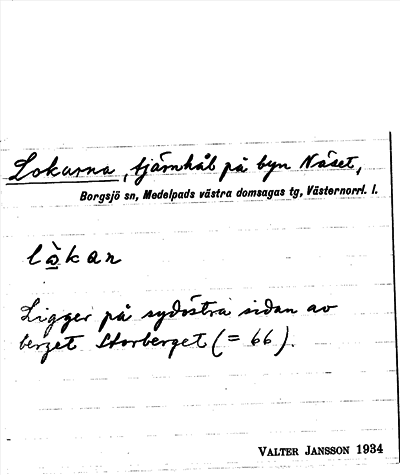 Lokarna, tjärnhål på byn Näset,
Borgsjö sn, Medelpads västra domsagas tg, Västernorrl. l.
lò̱kan
Ligger på sydöstra sidan av
berget Storberget (= 66).
VALTER JANSSON 1934